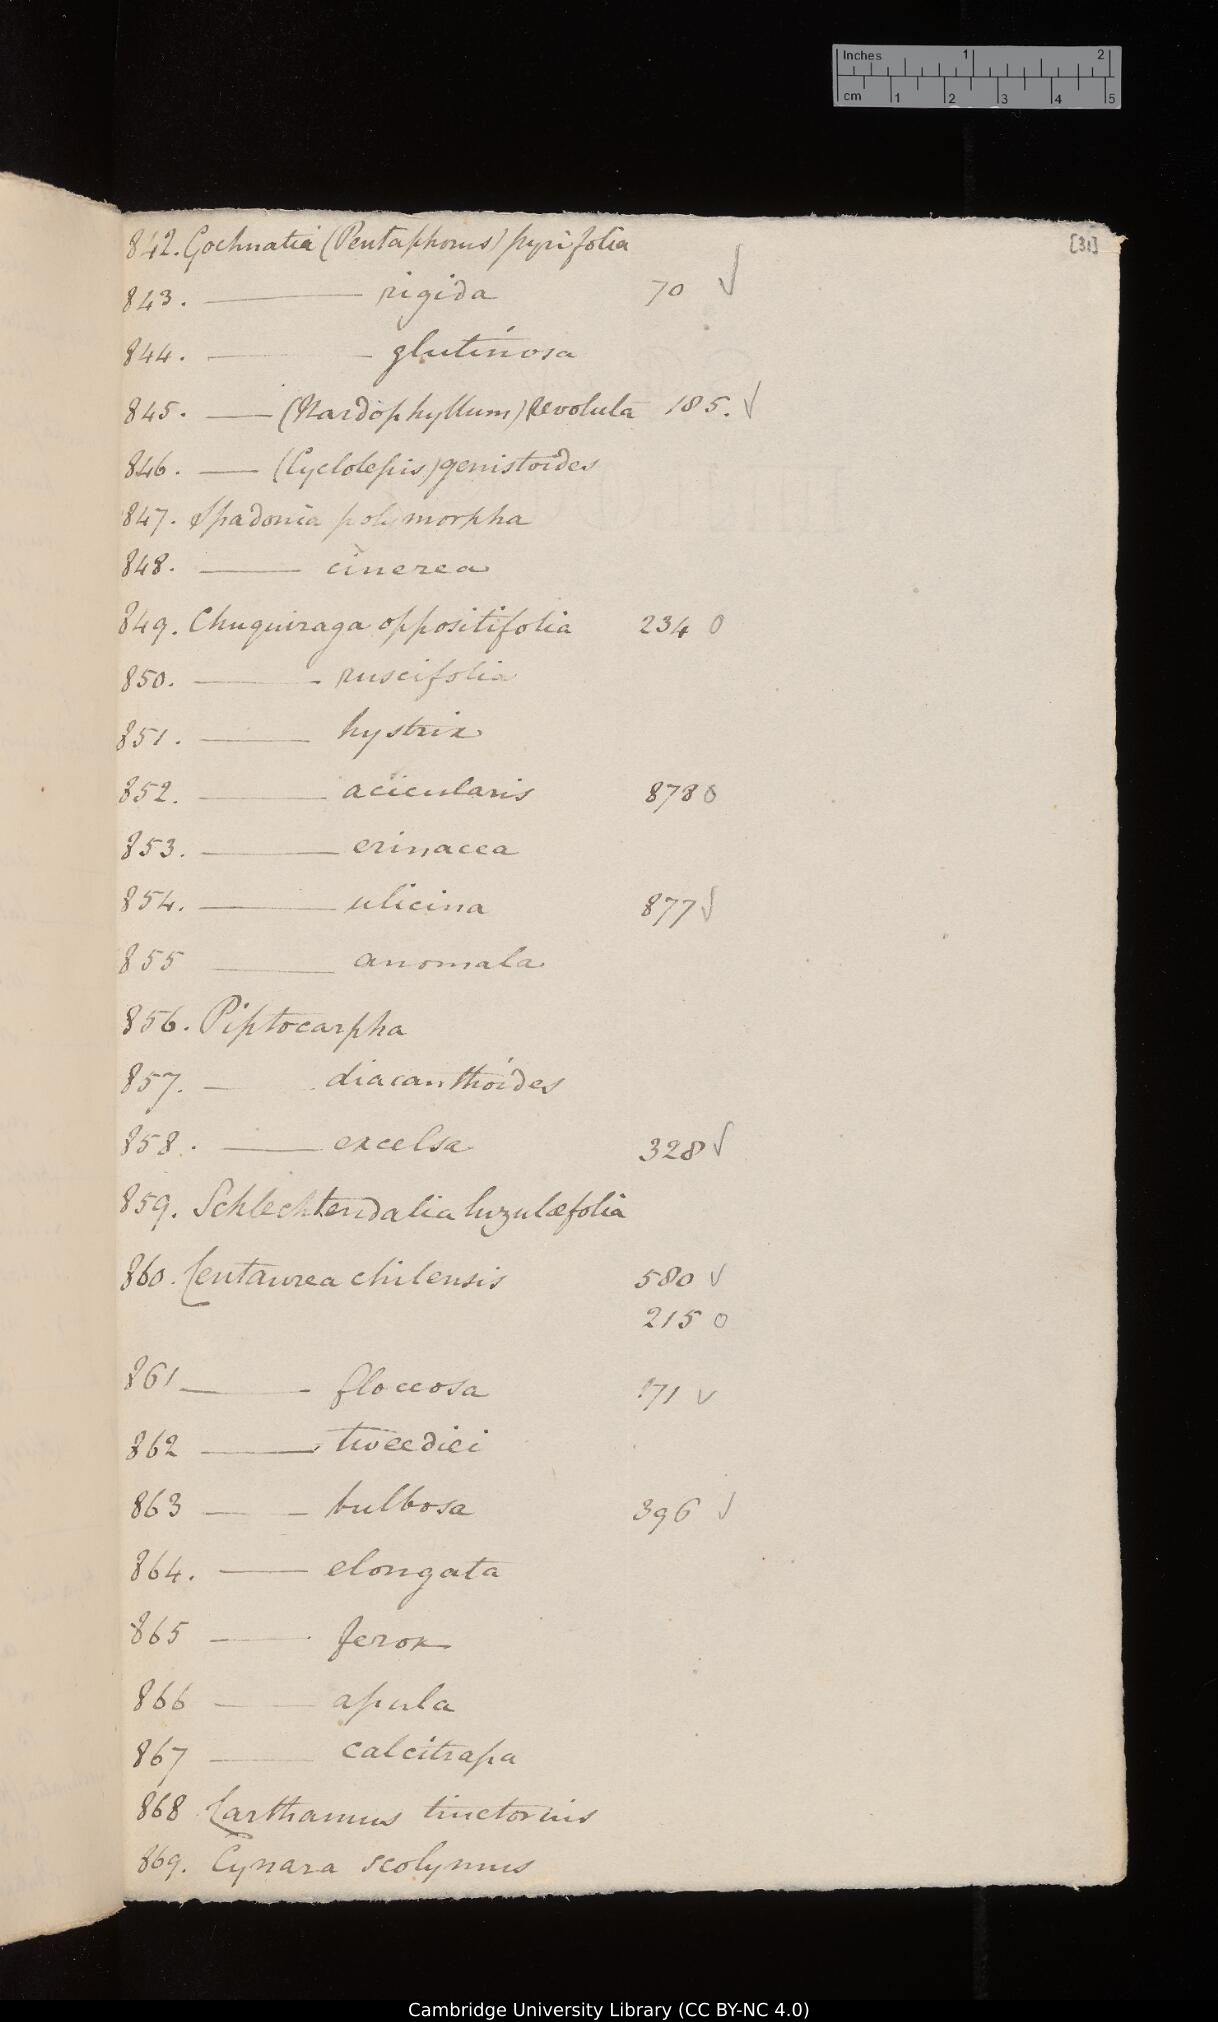 Inches 1 2
cm 1 2 3 4 5
[31]
842. Gochnatia (Pentaphorus) pyrifolia
843. ——— rigida 70 √
844. ——— glutinosa
845. —— (Nardophyllum) Revoluta 185. √
846. —— (Cyclolepis) genistoides
847. Spadonia polymorpha
848. ——— cinerea
849. Chuquiraga oppositifolia 234 0
850. ——— ruscifolia
851. ——— hystrix
852. ——— acicularis 878 0
853. ——— erinacea
854. ——— ulicina 877 √
855 ——— anomala
856. Piptocarpha
857. — diacanthoides
858. ——— excelsa 328 √
859. Schlechtendalia luzulæfolia
860. Centaurea chilensis 580 √
215 0
861 ——— floccosa 171 √
862 ——— tweediei
863 ——— bulbosa 396 √
864. ——— elongata
865 ——— ferox
866 ——— apula
867 ——— calcitrapa
868 Carthamus tinctorius
869. Cynara scolymus
Cambridge University Library (CC BY-NC 4.0)